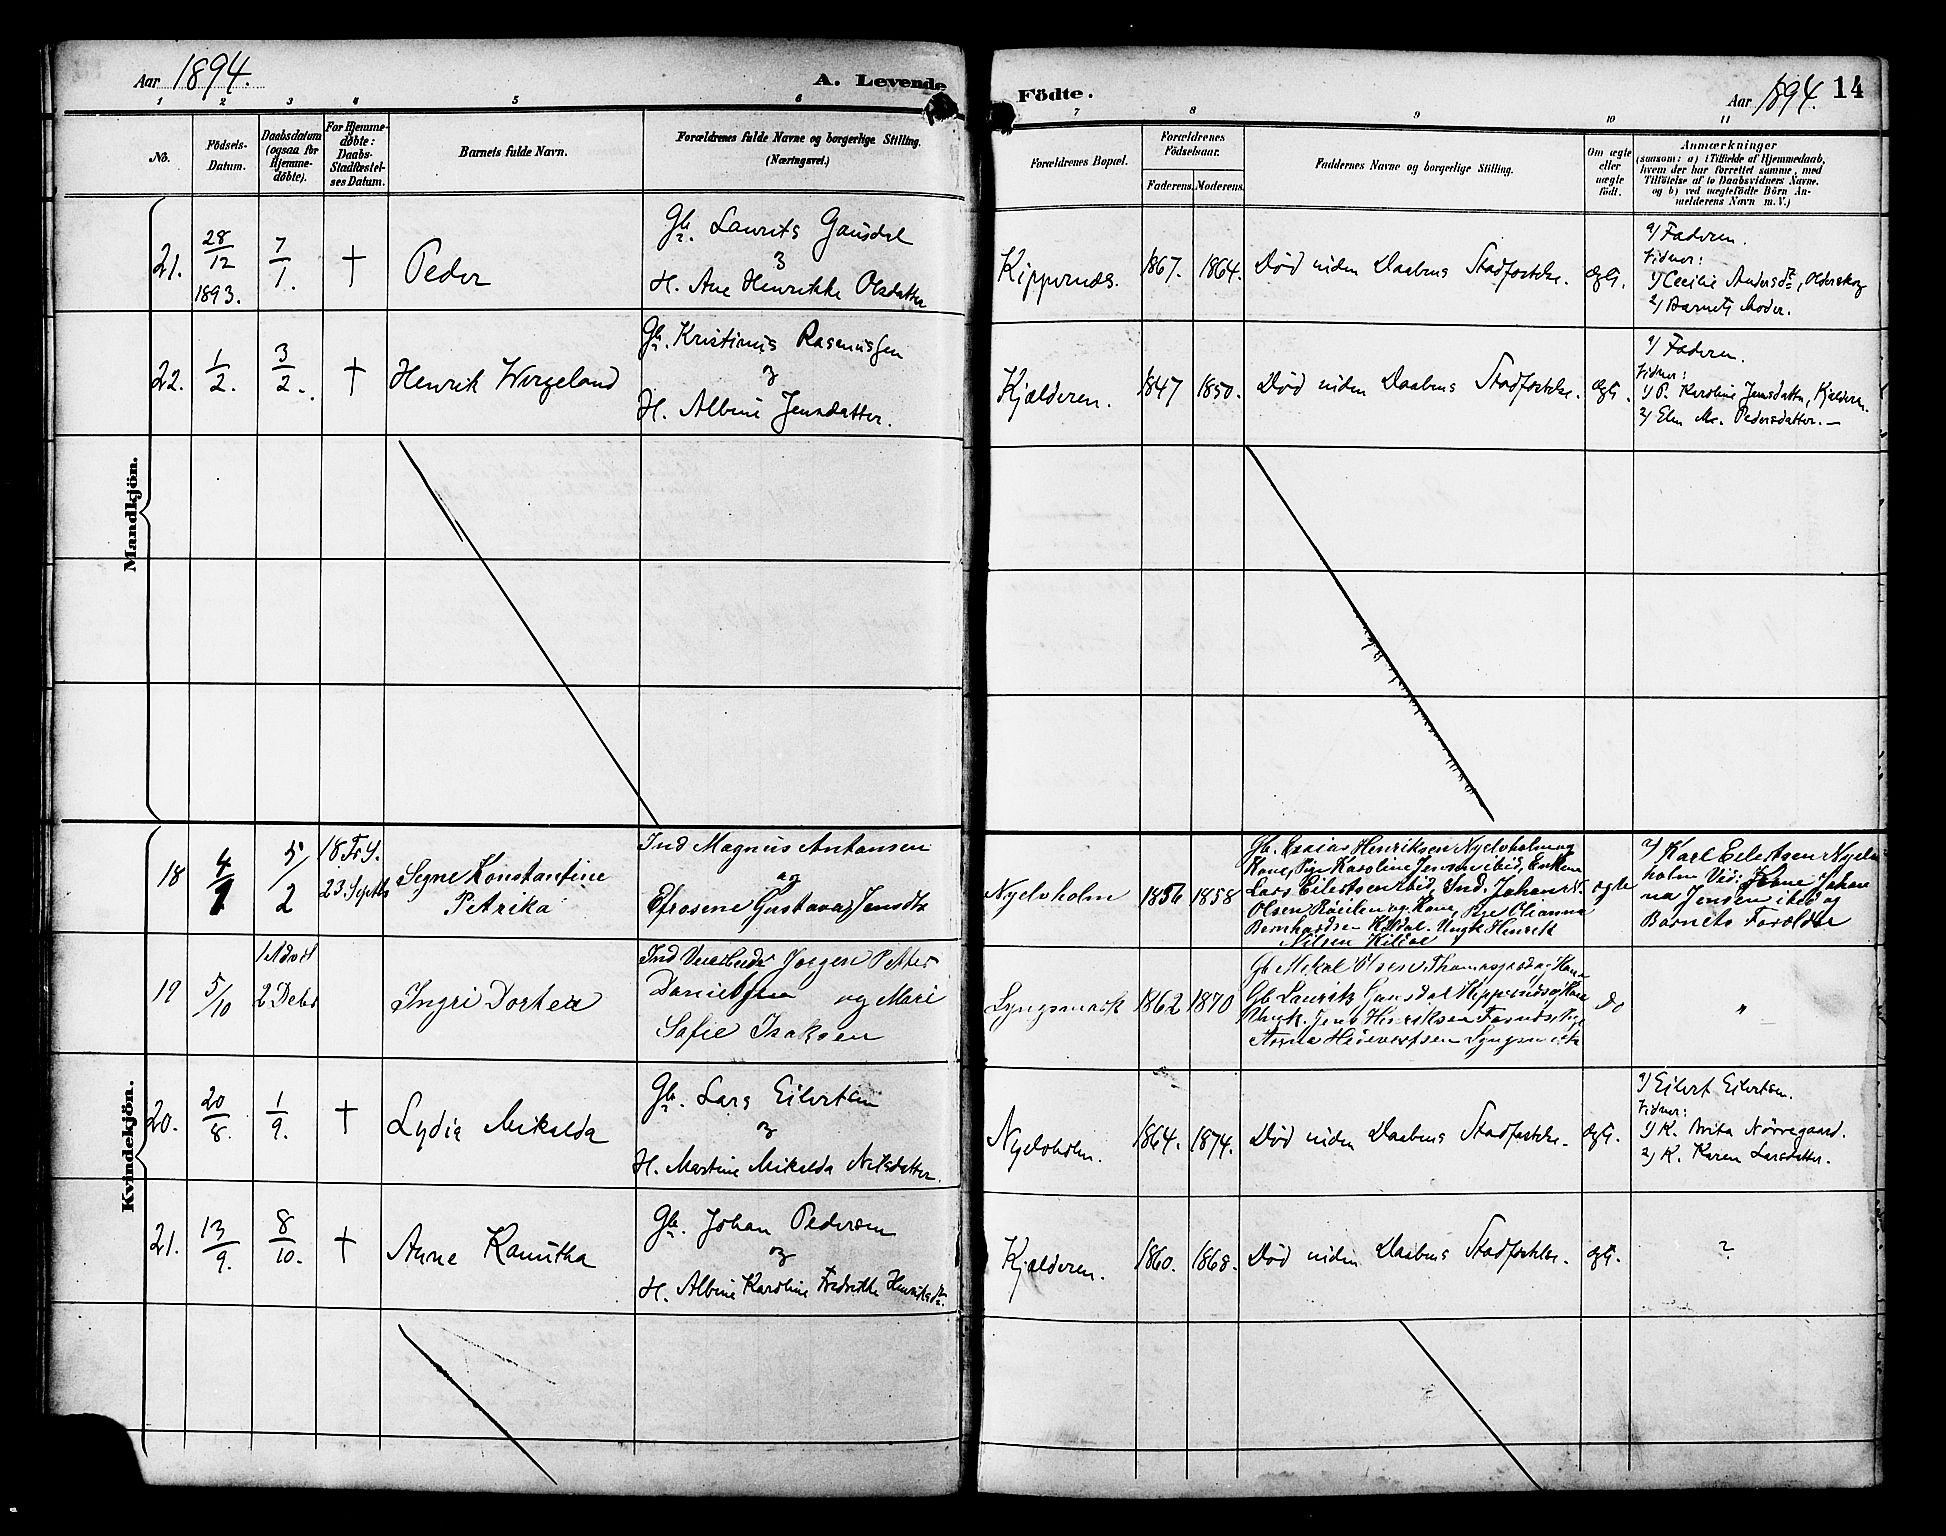 Aar 1894.
A. Levende
Födte.
Aar 1894. 14
1 2 3 4 5 6
7 8 9 10 11
No.
Födsels-
Datum.
Daabsdatum
(ogsaa for
Hjemme-
döbte).
For Hjemme-
döbte:
Daabs-
Stadfæstel-
ses Datum.
Barnets fulde Navn.
Forældrenes fulde Navne og borgerlige Stilling.
(Næringsvei.)
Forældrenes Bopæl.
Forældrenes
Födselsaar.
Faderens. Moderens.
Faddernes Navne og borgerlige Stilling.
Om ægte
eller
uægte
födt.
Anmærkninger
(saasom: a) i Tilfælde af Hjemmedaab,
hvem der har forrettet samme, med
Tilföielse af to Daabsvidners Navne,
og b) ved uægtefödte Börn An-
melderens Navn m. V.)
Mandkjön.
21.
28/12
1893.
7/1.
†
Peder
Gb. Laurits Gausdal
og
H. Ane Henrikke Olsdatter
Kippernæs.
1867.
1864.
Död uden Daabens Stadfæstelse.
ægte.
a) Faderen.
Vidner:
1) Cecilie Andersdt., Olderskog
2) Barnets Moder.
22.
1/2.
3/2.
†
Henrik Wergeland
Gb. Kristinus Rasmussen
og
H. Albine Jensdatter.
Kjelderen.
1847
1850.
Död uden Daabens Stadfæstelse.
ægte.
a) Faderen.
Vidner:
1) P. Karoline Jensdatter, Kjelderen.
2) Elen Mr. Pedersdatter. —
Kvindekjön.
18
4/1
5/2
18. Tr S.
23. Septbr
Signe Konstantine
Petrika
Ind Magnus Antonsen
og
Efrosene Gustava Jensdtr
Nyelvholm
1856
1858
Gb. Esaias Henriksen Nyelvholm og
Kone, Pige Karoline Jensen ibid, Enkem
Lars Eilertsen ibid, Ind. Johan N.
Olsen Röeilen og Kone, Pige Olianna
Bernhardsen Kildal. Ungk Henrik
Nilsen Kildal
ægte
a) Karl Eilertsen Nyelv
holm Vid: Kone Johan
na Jensen ibid og
Barnets Forældre
19
5/10
1 Advst
2 Debr
Ingri Dortea
Ind Jørgen Petter
Danielsen og Mari
Safie Isaksen
Lyngsmark
1862
1870
Gb Mikal Olsen Thomasjord og Kone
Gb Lauritz Gausdal Kippernes og Kone
Ungk. Jens Henriksen Pige
Anna Lyngsmark
do
"
20.
20/8.
1/9.
†
Lydia Mikalda
Gb. Lars Eilertsen
og
H. Martine Mikalda Nilsdatter.
Nyelvholm.
1864.
1874.
Död uden Daabens Stadfæstelse.
ægte.
a) Eilert Eilertsen.
Vidner:
1) K. Brita Nörregaard.
2) K. Karen Larsdatter.
21.
13/9.
8/10.
†
Anne Kanutha
Gb. Johan Pedersen
og
H. Albine Karoline Fredrikke Henriksdt.
Kjelderen.
1860.
1868.
Död uden Daabens Stadfæstelse.
ægte.
?